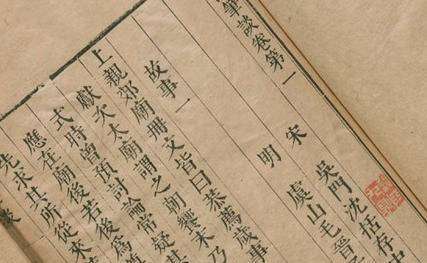 筆談卷第一
宋 吳門沈括存中
明 虞山毛晉
故事一
上親郊廟冊文皆曰恭薦歲事
獻次太廟謂之朝饗末乃
式時曾預討論常疑其
應在廟後若後為
先求其所從來